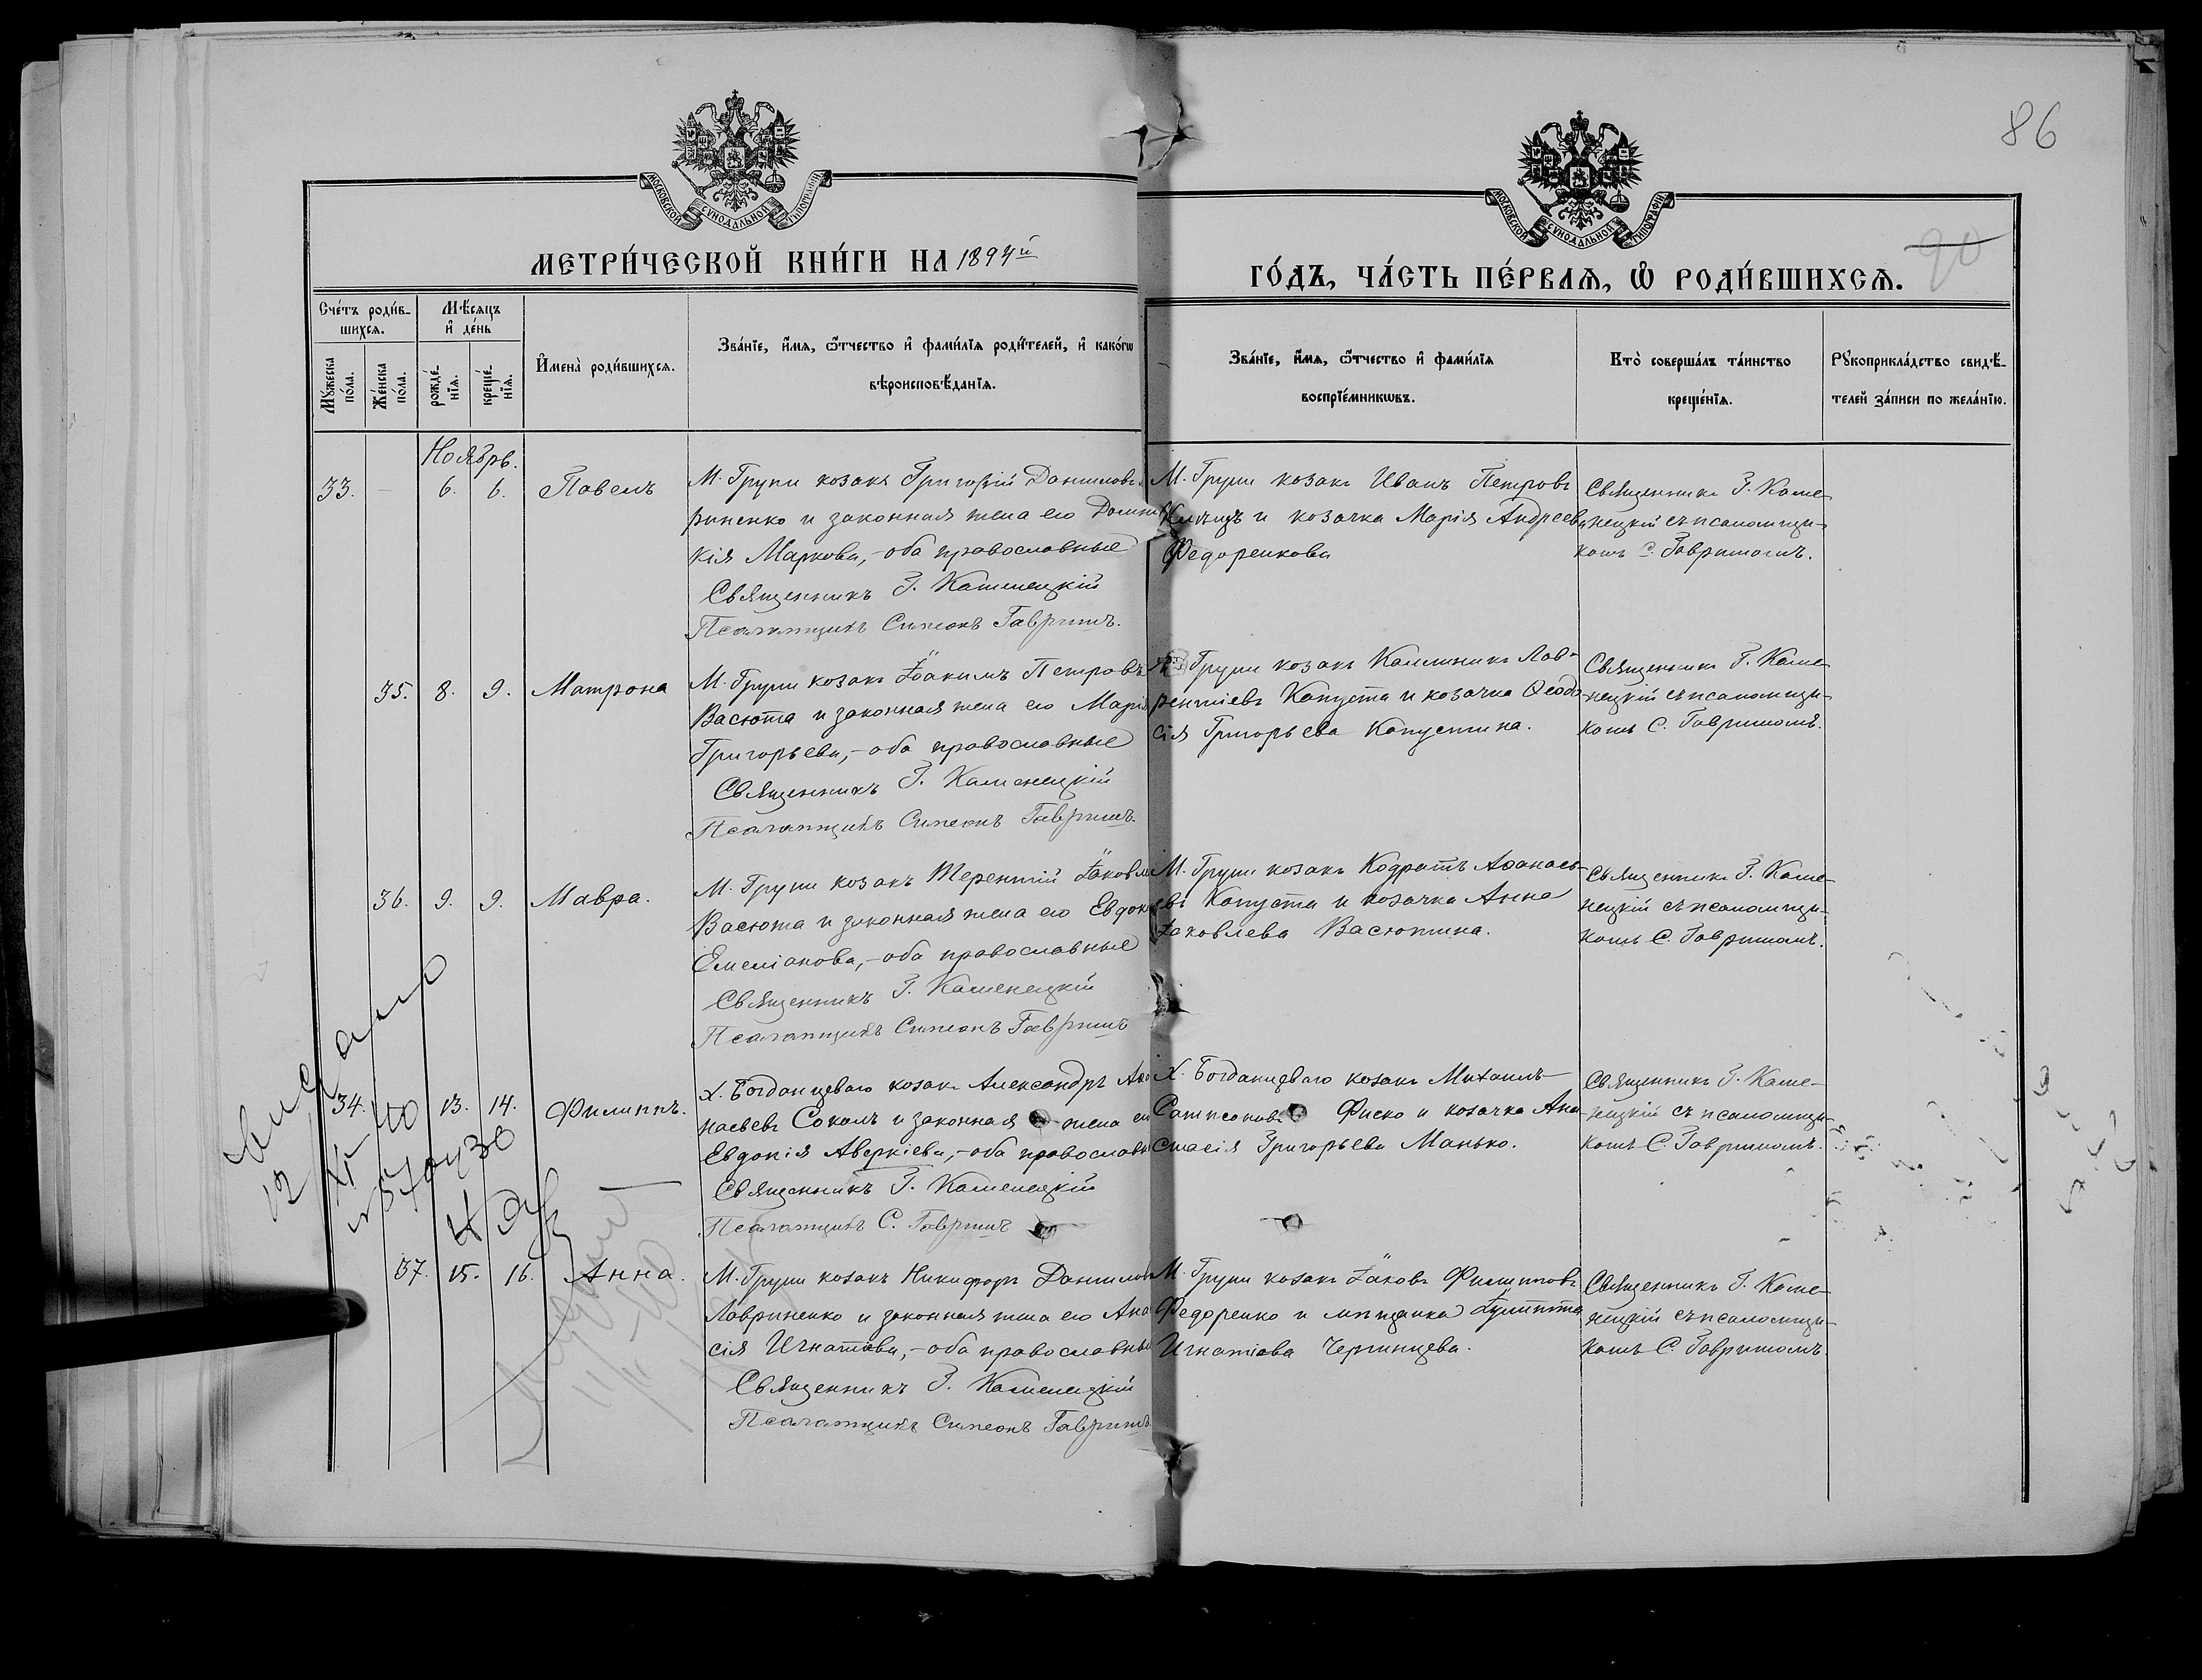 86
МОСКОВСКОЙ СУНОДАЛЬНОЙ ТИПОГРАФІИ
МОСКОВСКОЙ СУНОДАЛЬНОЙ ТИПОГРАФІИ
МЕТРИ́ЧЕСКОЙ КНИ́ГИ НА 1894й
ГО́ДЪ, ЧА́СТЬ ПЕ́РВАѦ, Ѡ҆ РОДИ́ВШИХСѦ.
90
Сче́тъ роди́в-
шихсѧ.
Мꙋжеска по́ла.
Же́нска по́ла.
Мѣ́сѧцъ
и҆ де́нь
рожде́-
нїѧ.
креще́-
нїѧ.
И҆мена̀ роди́вшихсѧ.
Зва́нїе, и҆́мѧ, ѻ҆́тчество и҆ фами́лїѧ роди́телей, и҆ како́гѡ
вѣроисповѣ́данїѧ.
Зва́нїе, и҆́мѧ, ѻ҆́тчество и҆ фами́лїѧ
воспрїе́мникѡвъ.
Кто̀ соверша́лъ та́инство
креще́нїѧ.
Рꙋкоприкла́дство свидѣ́-
телей за́писи по жела́нїю.
Ноябрь.
33. - 6. 6. Павелъ
М. Груни козакъ Григорій Данилов
риненко и законная жена его
кія Маркова, - оба православные
Священникъ Г. Каменецкій
Псаломщикъ Симеонъ Гавришъ.
М. Груни козакъ Иванъ Петровъ
и козачка Марія Андреев
Федоренкова
Священникъ Г. Каме-
нецкій съ псаломщи-
комъ С. Гавришомъ.
35. 8. 9. Матрона
М. Груни козакъ Іоакимъ Петровъ
Васюта и законная жена его Марія
Григорьева, - оба православные
Священникъ Г. Каменецкій
Псаломщикъ Симеонъ Гавришъ.
Груни козакъ Калиникъ Лав-
рентіевъ Капуста и козачка Ѳеодо-
сія Григорьева Капустина.
Священникъ Г. Каме-
нецкій съ псаломщи-
комъ С. Гавришомъ.
36. 9. 9. Мавра.
М. Груни козакъ Терентій Іаковле
Васюта и законная жена его Евдок
Емеліанова, - оба православные
Священникъ Г. Каменецкій
Псаломщикъ Симеонъ Гавришъ
М. Груни козакъ Кодратъ Аѳанась-
евъ Капуста и козачка Анна
Іаковлева Васютина.
Священникъ Г. Каме-
нецкій съ псаломщи-
комъ С. Гавришомъ.
34. 13. 14. Филиппъ.
Х. Богданцеваго козакъ Александръ Аѳа
насьевъ Соколъ и законная жена его
Евдокія Аверкіева, - оба православн
Священникъ Г. Каменецкій
Псаломщикъ С. Гавришъ
Х. Богданцеваго козакъ Михаилъ
Сампсоновъ Фиско и козачка Ана-
стасія Григорьева Манько.
Священникъ Г. Каме-
нецкій съ псаломщи-
комъ С. Гавришомъ.
37. 15. 16. Анна.
М. Груни козакъ Никифоръ Данилов
Лавриненко и законная жена его Ана
сія Игнатіева, - оба православные
Священникъ Г. Каменецкій
Псаломщикъ Симеонъ Гавришъ.
М. Груни козакъ Іаковъ Филипповъ
Федоренко и мѣщанка Іулитта
Игнатіева
Священникъ Г. Каме-
нецкій съ псаломщи-
комъ С. Гавришомъ.